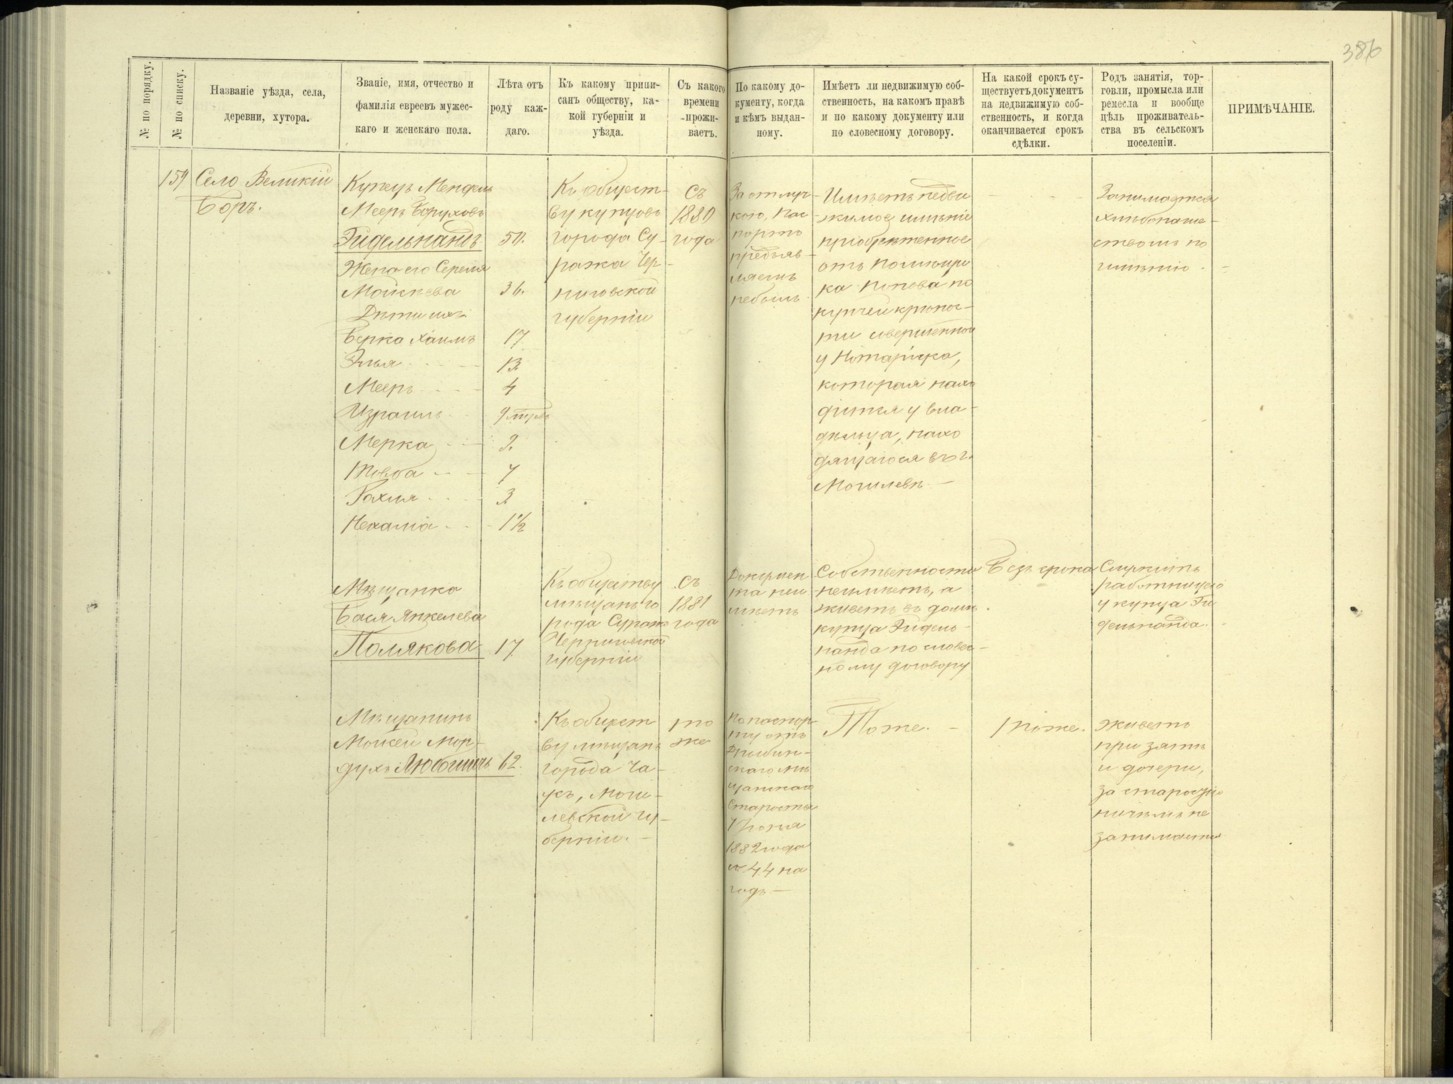 386
№ по порядку.
№ по списку.
Названіе уѣзда, села,
деревни, хутора.
Званіе, имя, отчество и
фамилія евреевъ мужес-
каго и женскаго пола.
Лѣта отъ
роду каж-
даго.
Къ какому припи-
санъ обществу, ка-
кой губерніи и
уѣзда.
Съ какого
времени
прожи-
ваетъ.
По какому до-
кументу, когда
и кѣмъ выдан-
ному.
Имѣетъ ли недвижимую соб-
ственность, на какомъ правѣ
и по какому документу или
по словесному договору.
На какой срокъ су-
ществуетъ документъ
на недвижимую соб-
ственность, и когда
оканчивается срокъ
сдѣлки.
Родъ занятія, тор-
говли, промысла или
ремесла и вообще
цѣль проживатель-
ства въ сельскомъ
поселеніи.
ПРИМѢЧАНІЕ.
159
Село Великій
Боръ.
Купецъ Мендель
Мееръ Боруховъ
Эйдельнантъ 50.
Жена его
Мойсеева 36.
Дѣти ихъ
Берка Хаимъ 17
Элья 13
Мееръ 4
Израиль
Мерка
7
Рохля 3
Нехама 1½
Къ общест-
ву купцовъ
города Су-
ража Чер-
ниговской
губерніи
Съ
1880
года
Имѣетъ недви-
жимое имѣніе
пріобрѣтенное
отъ помѣщи-
ка Попова по
купчей крѣпос-
ти совершенной
у Нотаріуса,
которая нахо
дится у вла-
дѣльца, нахо
дящагося въ г.
Могилевѣ
Занимается
хлѣбопаше-
ствомъ по
имѣнію
Мѣщанка
Бася Янкелева
Полякова 17
Къ обществу
мѣщанъ го
рода Суража
Черниговской
губерніи
Съ
1881
года
Докумен
та неи
мѣетъ
Собственности
неимѣетъ, а
живетъ въ домѣ
купца Эйдель-
нанта по словес-
ному договору
Безъ срока
Служитъ
работницею
у купца Эй
дельнанта
Мѣщанинъ
Мойсей Мор-
духъ Любошицъ 62.
Къ общест
ву мѣщанъ
города Ча-
усъ, Моги-
левской гу-
берніи.
то
же
По паспор-
ту отъ
Дрибин-
скаго мѣ
щанскаго
Старосты
1882 года
№ 44 на
годъ
Тоже.
тоже.
Живетъ
при зятѣ
и дочери,
за старостію
ничѣмъ не
занимается